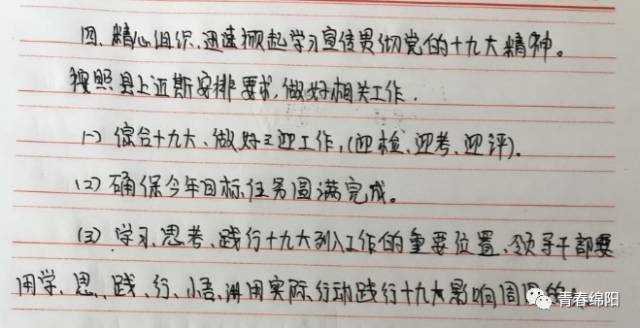 四、精心组织、迅速掀起学习宣传贯彻党的十九大精神。
按照县上近期安排要求,做好相关工作.
(一) 综合十九大、做好三迎工作,(迎检、迎考、迎评)。
(2) 确保今年目标任务圆满完成。
(3) 学习、思考、践行十九大列入工作的重要位置、领导干部要
用学、思、践、行、小悟、讲用实际行动践行十九大影响周围的
青春绵阳